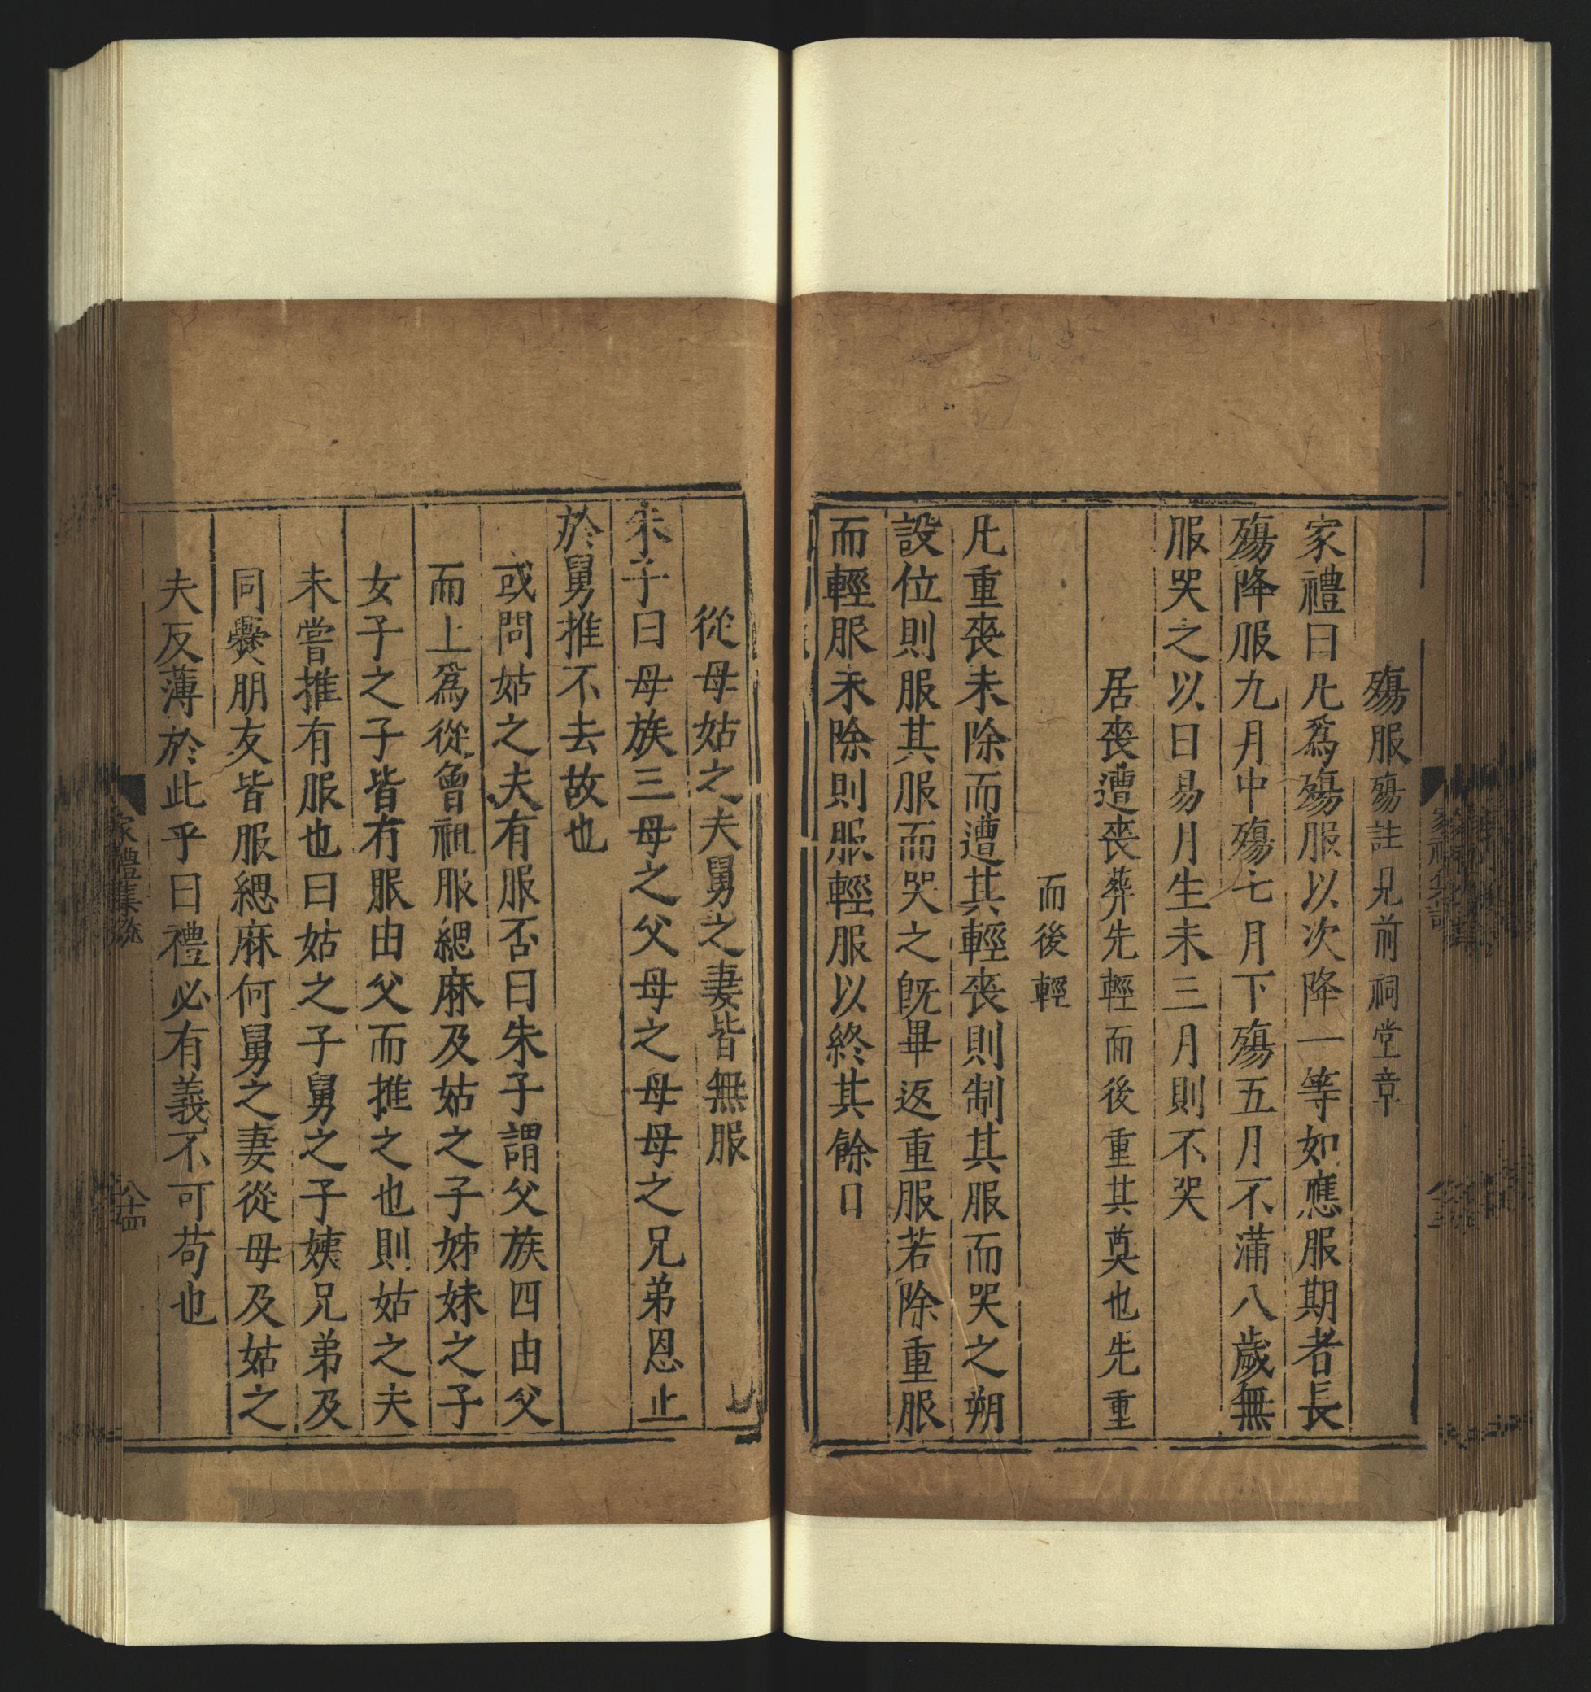 殤服殤註見前祠堂章
家禮曰凡爲殤服以次降一等如應服期者長
殤降服九月中殤七月下殤五月不滿八歲無
服哭之以日易月生未三月則不哭
居喪遭喪葬先輕而後重其奠也先重
而後輕
凡重喪未除而遭其輕喪則制其服而哭之朔
設位則服其服而哭之旣畢返重服若除重服
而輕服未除則服輕服以終其餘日
從母姑之夫舅之妻皆無服
朱子曰母族三母之父母之母母之兄弟恩止
於舅推不去故也
或問姑之夫有服否曰朱子謂父族四由父
而上爲從曾祖服緦麻及姑之子姊妹之子
女子之子皆有服由父而推之也則姑之夫
未嘗推有服也曰姑之子舅之子姨兄弟及
同爨朋友皆服緦麻何舅之妻從母及姑之
夫反薄於此乎曰禮必有義不可苟也
家禮集說
八十四